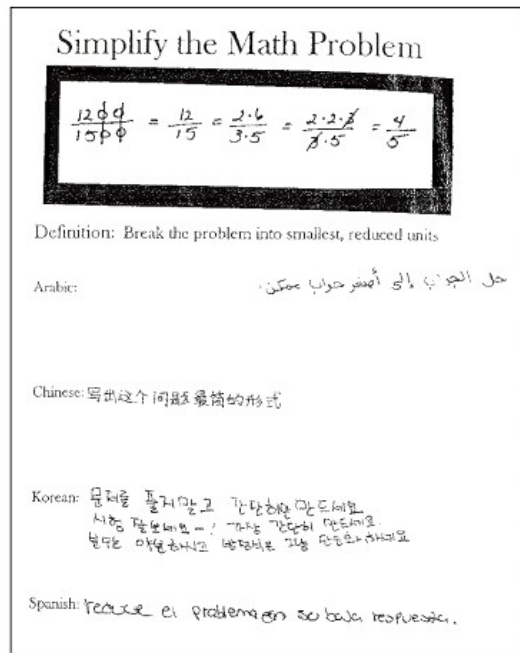 Simplify the Math Problem
1200/1500 = 12/15 = 2·6/3·5 = 2·2·3/3·5 = 4/5
Definition: Break the problem into smallest, reduced units
Arabic: حل الجواب إلى أصغر جواب ممكن.
Chinese: 写出这个问题最简的形式
Korean: 문제를 풀지말고 간단히만 만드세요
시험 잘보세요~! 가장 간단히 만드세요.
분수는 약분하시고 방정식은 그냥 단순화하세요
Spanish: reduce el problema en su baja respuesta.